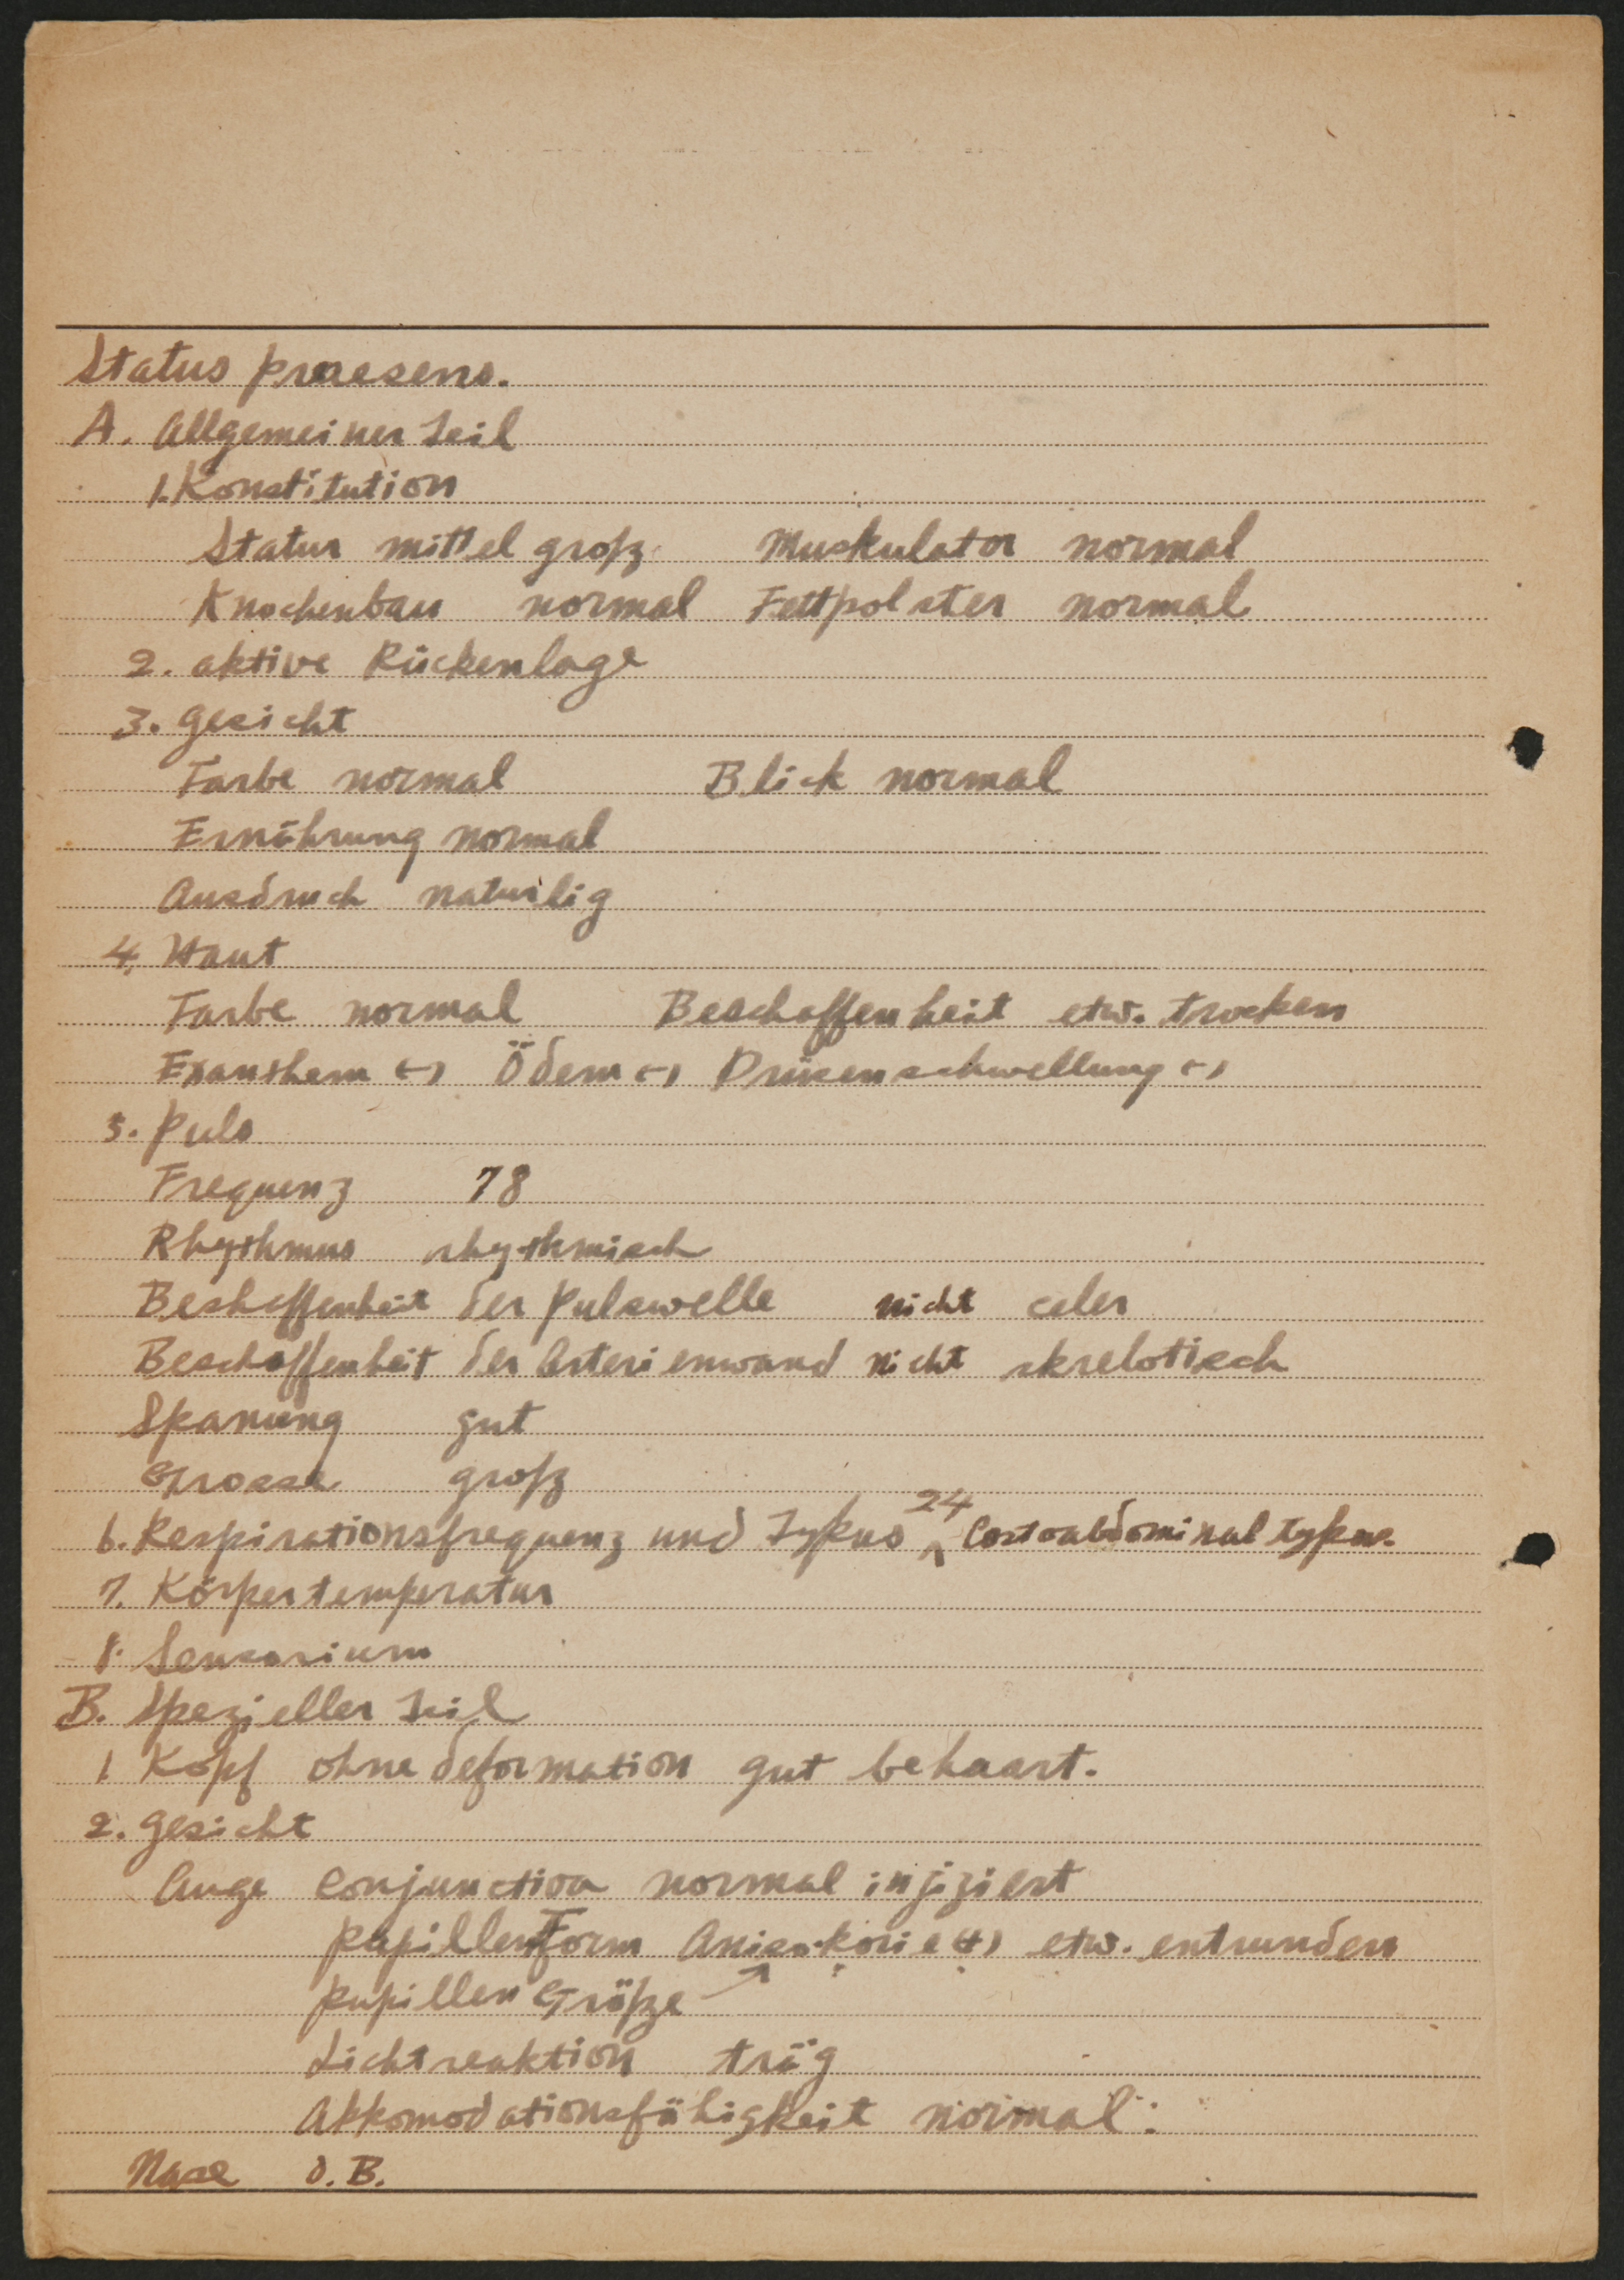 Status praesens.
A. Allgemeiner Teil
1. Konstitution
Statur mittel groß Muskulator normal
Knochenbau normal Fettpolster normal
2. aktive Rückenlage
3. Gesicht
Farbe normal Blick normal
Ernährung normal
Ausdruch naturlig
4. Haut
Farbe normal Beschaffenheit etw. trocken
Exanthem (-) Ödem (-) Drüsenschwellung (-)
5. Puls
Frequenz 78
Rhythmus rhythmisch
Beshaffenheit der Pulswelle nicht celer
Beschaffenheit der Arterienwand nicht skrelotisch
Spanung gut
Grosse groß
6. Respirationsfrequenz und Typus 24 Costoabdominal typus.
7. Körpertemperatur
8. Sensorium
B. Spezieller Teil
1. Kopf ohne deformation gut behaart.
2. Gesicht
Auge Conjunctiva normal injiziert
Pupillen Form Anisokorie (+) etw. entrunden
Pupillen Größe ↗
Lichtreaktion träg
Akkomodationsfähigkeit normal.
Nase o. B.